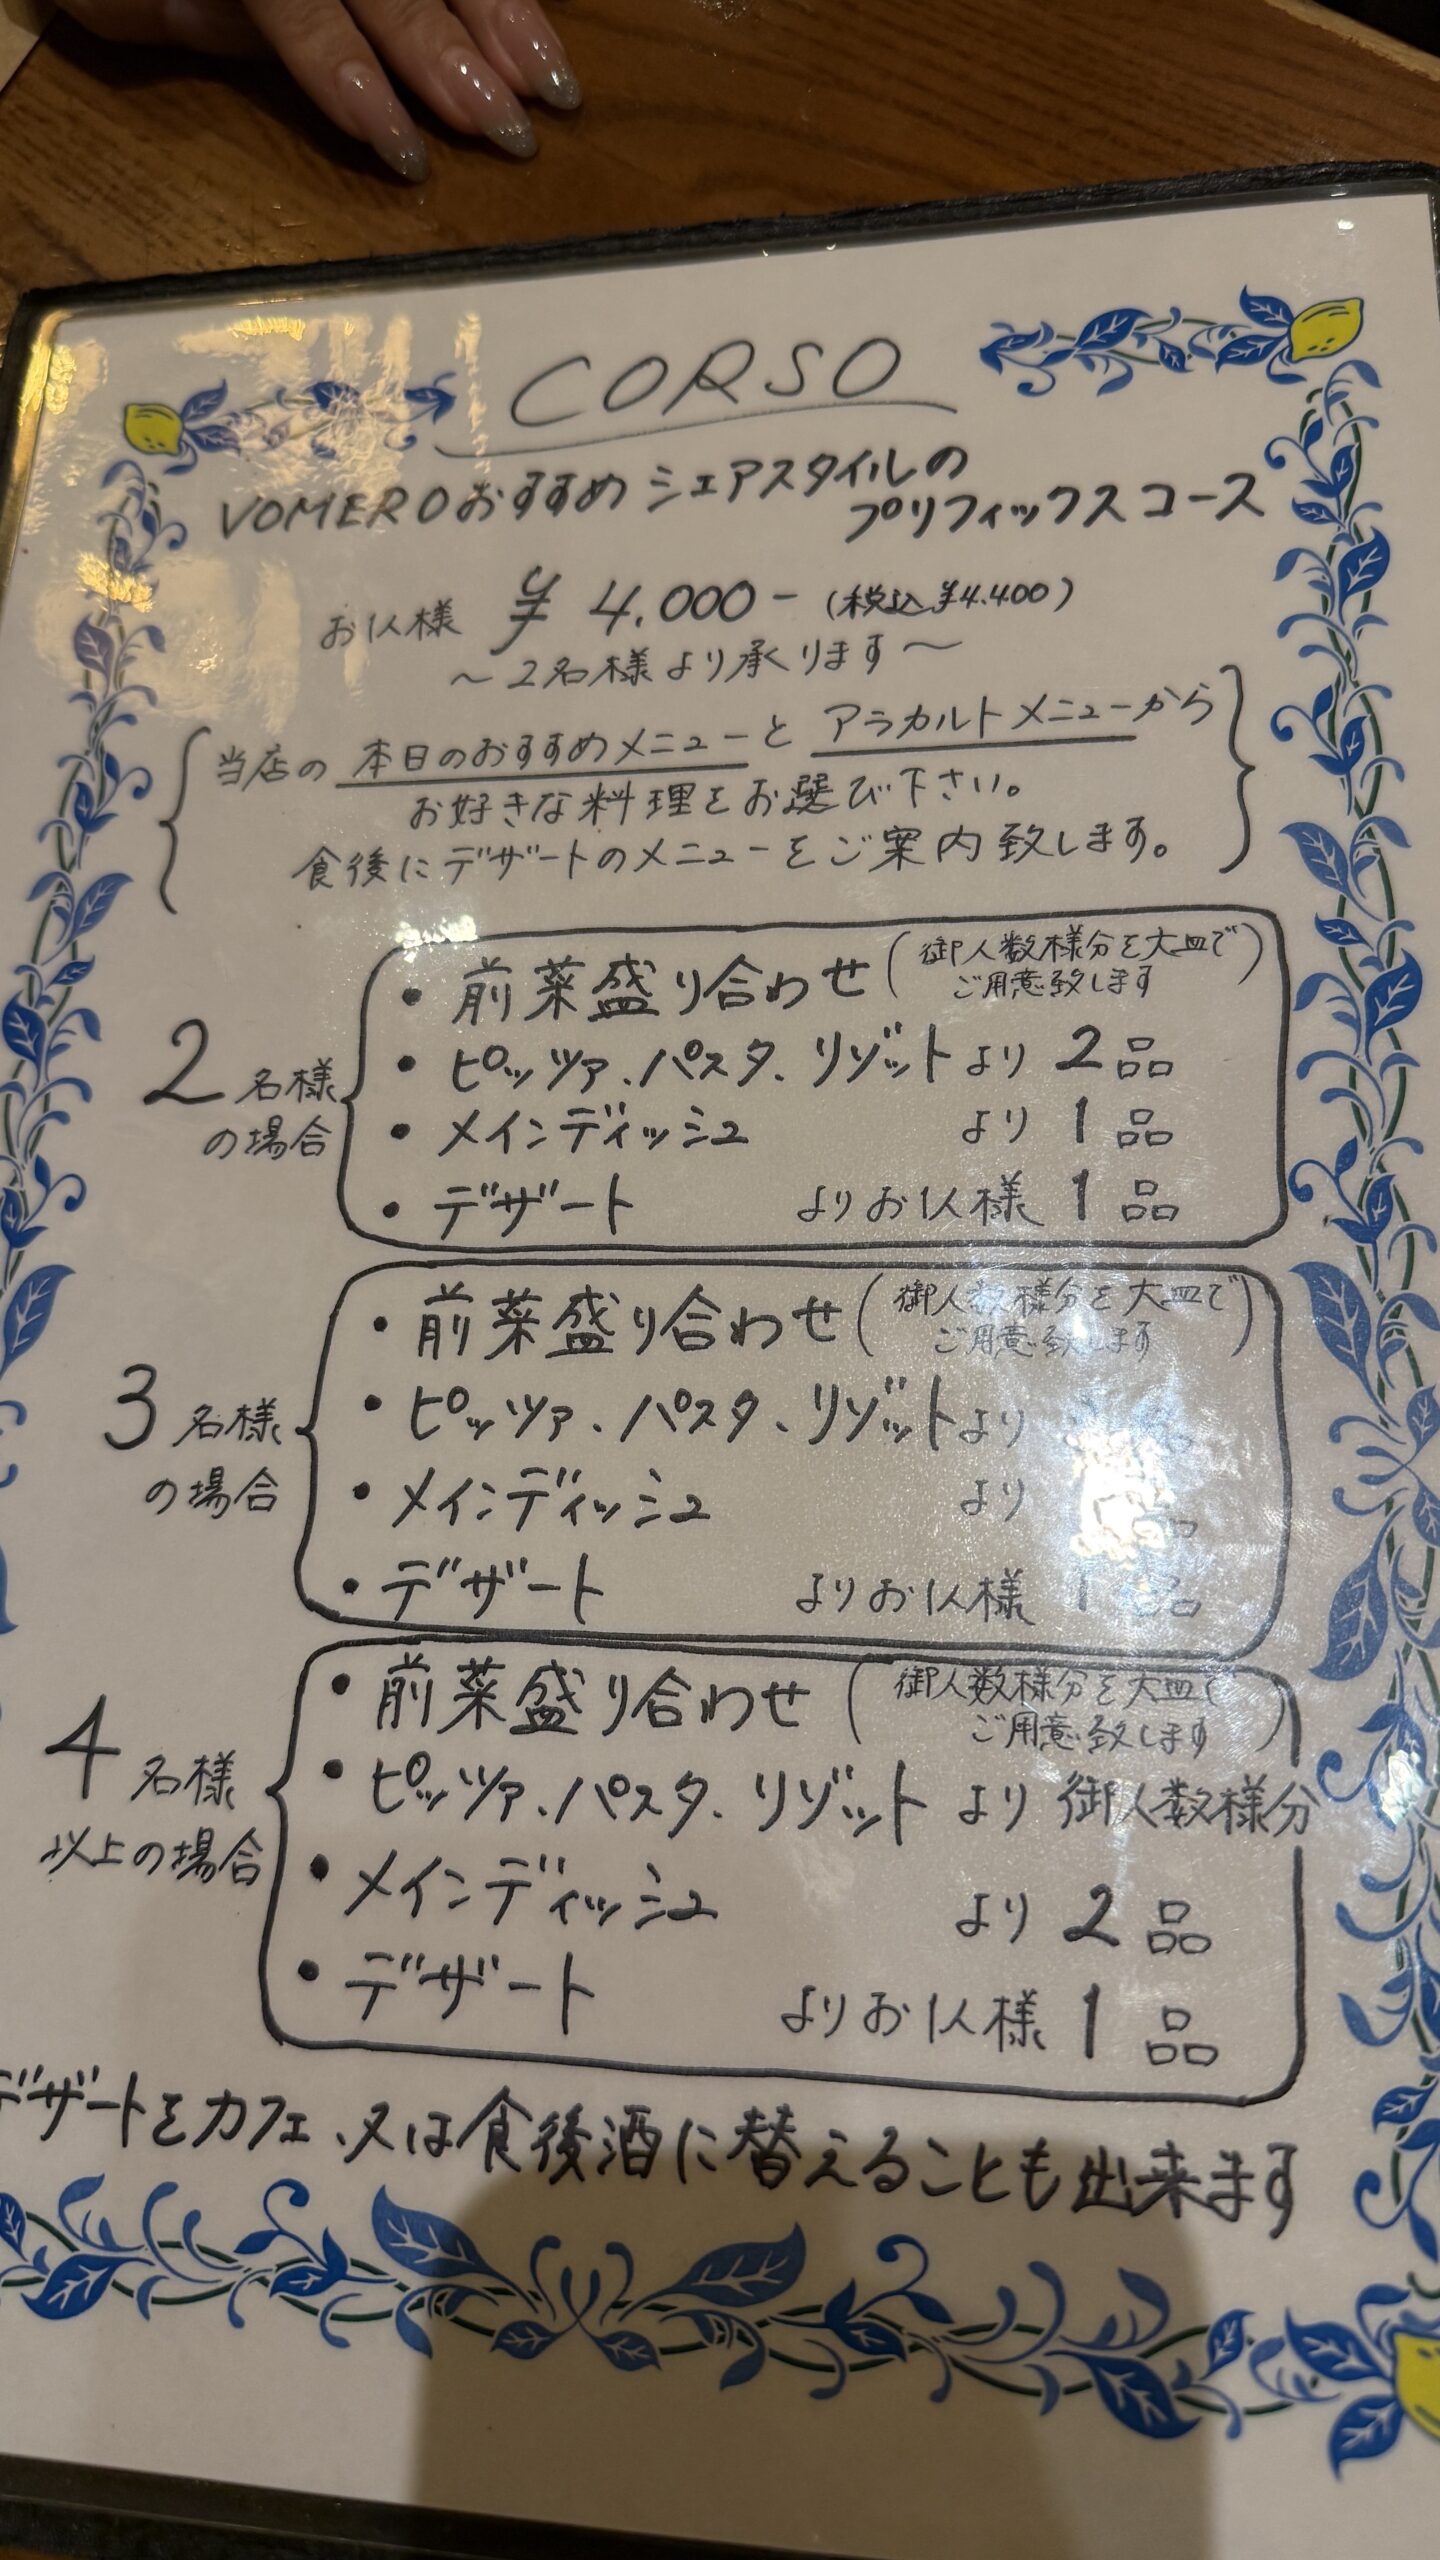 CORSO
VOMEROおすすめ シェアスタイルの
プリフィックスコース
お1人様 ¥4.000- (税込¥4.400)
~2名様より承ります~
当店の 本日のおすすめメニューと アラカルトメニューから
お好きな料理をお選び下さい。
食後にデザートのメニューをご案内致します。
2名様
の場合
・前菜盛り合わせ(御人数様分を大皿で
ご用意致します)
・ピッツァ、パスタ、リゾットより 2品
・メインディッシュ より 1品
・デザート よりお1人様 1品
3名様
の場合
・前菜盛り合わせ(御人数様分を大皿で
ご用意致します)
・ピッツァ、パスタ、リゾットより
・メインディッシュ より 品
・デザート よりお1人様 1品
4名様
以上の場合
・前菜盛り合わせ(御人数様分を大皿で
ご用意致します)
・ピッツァ、パスタ、リゾット より 御人数様分
・メインディッシュ より 2品
・デザート よりお1人様 1品
デザートをカフェ、又は食後酒に替えることも出来ます